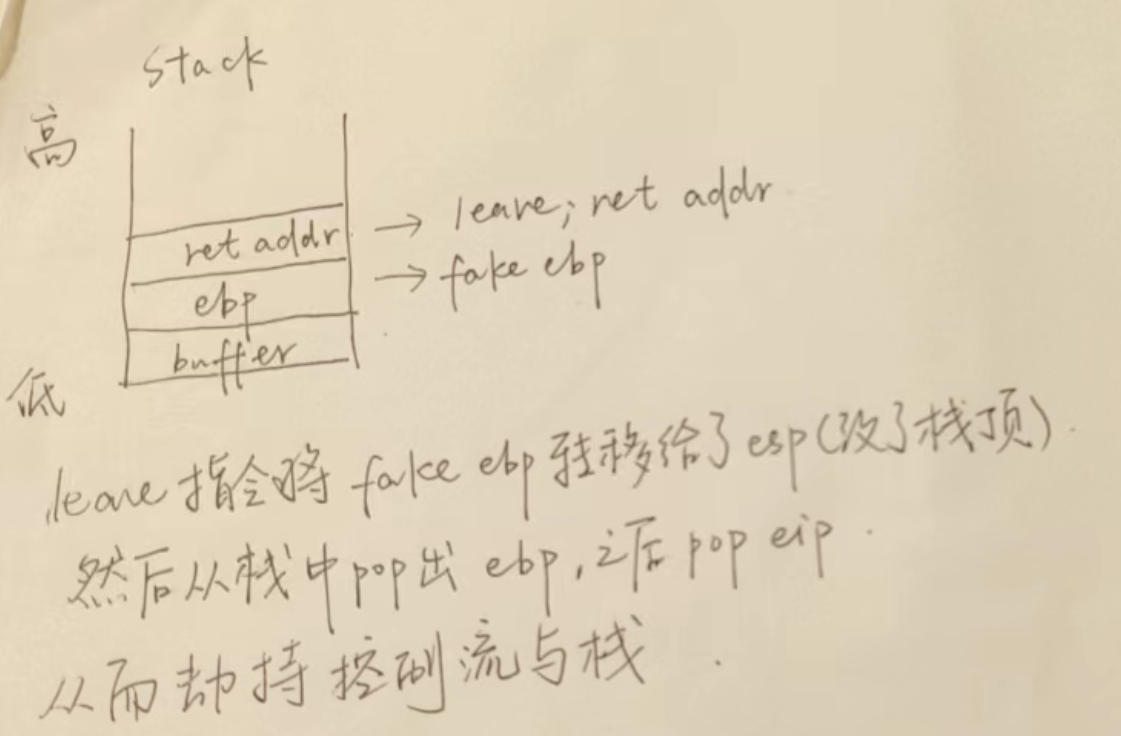 stack
高
ret addr → leave; ret addr
ebp → fake ebp
buffer
低
leave指令将 fake ebp 转移给了esp(改了栈顶).
然后从栈中pop出 ebp,之后 pop eip.
从而劫持控制流与栈.